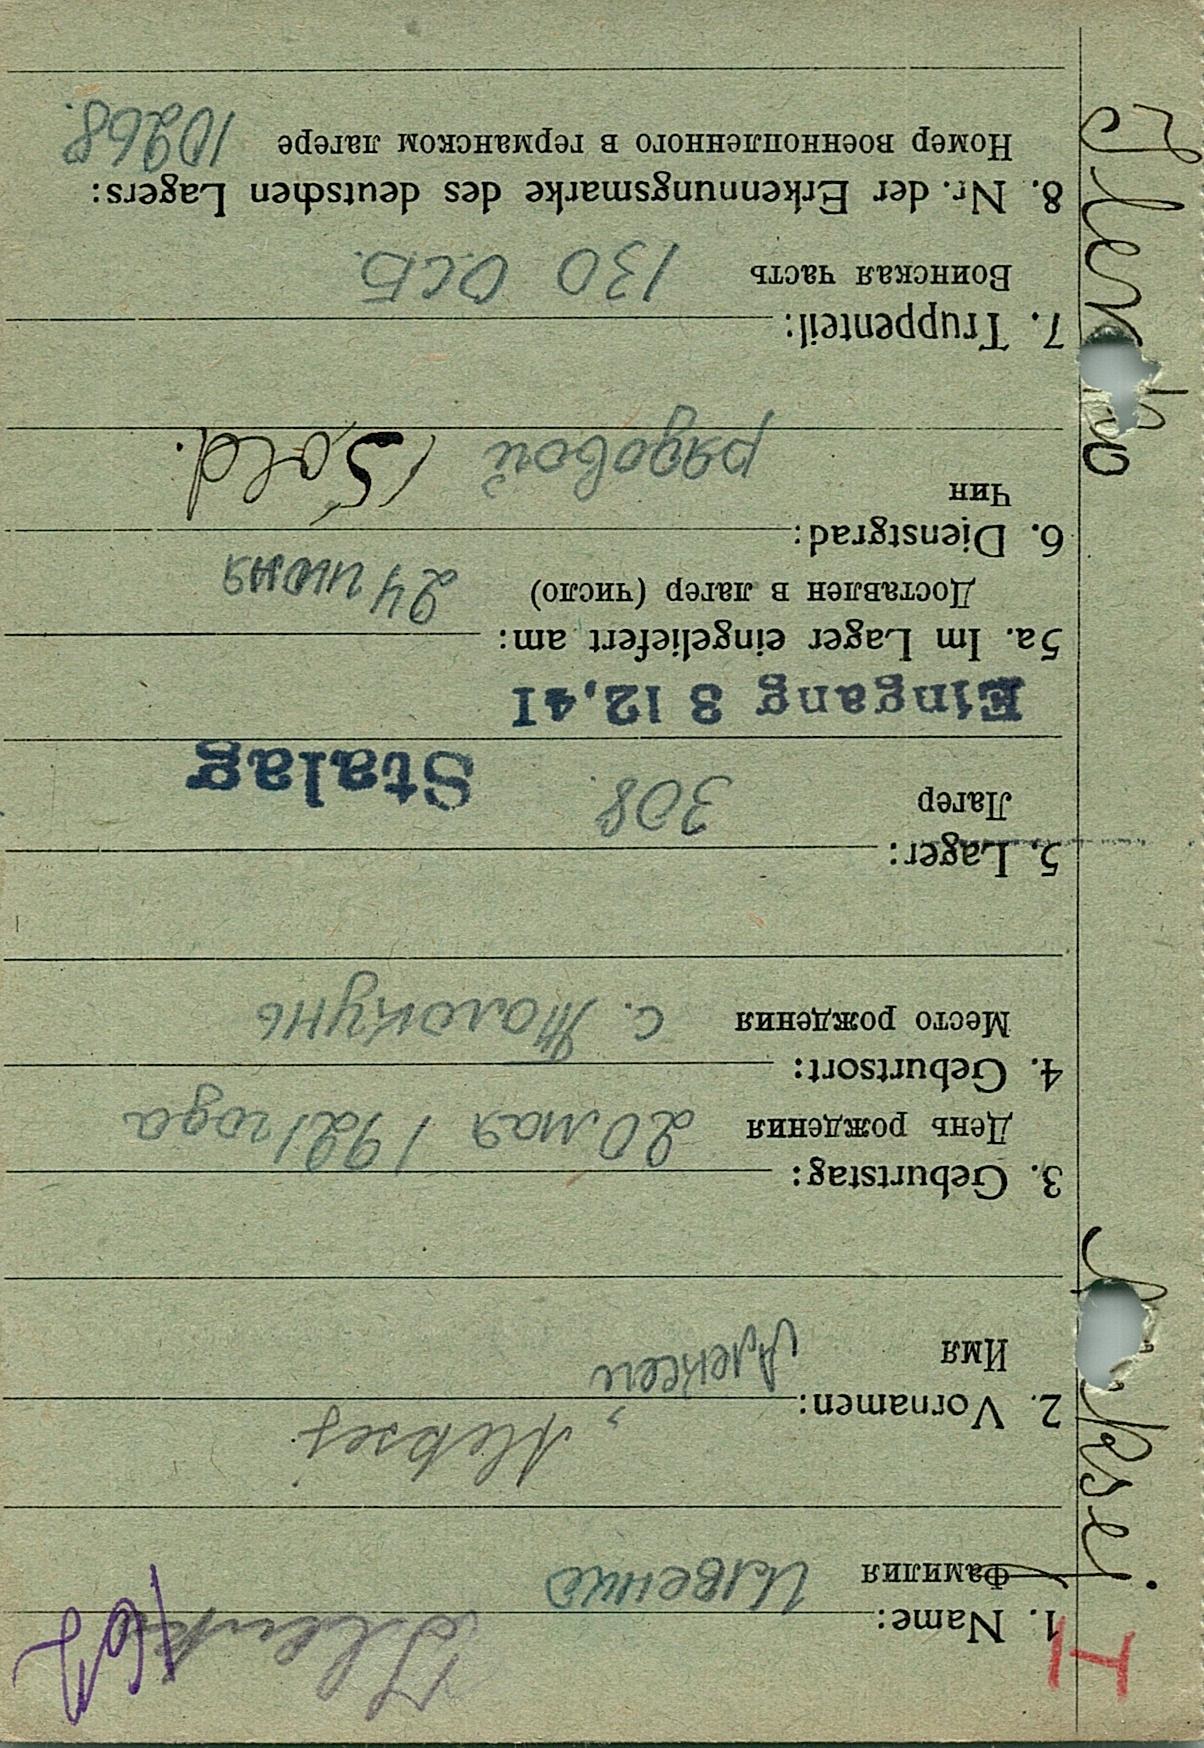 1. Name: Ilenko
Фамилия Илвенко
162
2. Vornamen: Aleksej
Имя Алексей
3. Geburtstag:
День рождения 20 мая 1921 года
4. Geburtsort:
Место рождения с. Толокунь
5. Lager:
Лагер 308. Stalag
Eingang 3 12.41
5a. Im Lager eingeliefert am:
Доставлен в лагер (число) 24 июня
6. Dienstgrad:
Чин рядовой (Sold.
7. Truppenteil:
Воинская часть 130 О.С.Б.
8. Nr. der Erkennungsmarke des deutschen Lagers:
Номер военнопленного в германском лагере 10268.
Ilenko
Aleksej